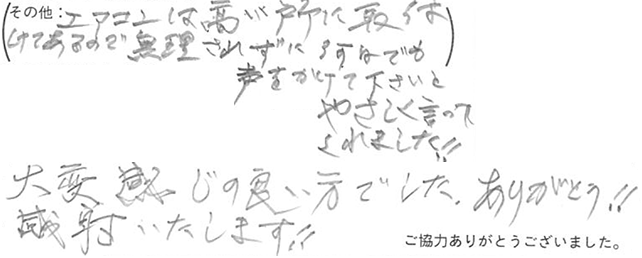 その他：エアコンは高い所に取り付
けてあるので無理されずに何なでも
声をかけて下さいと
やさしく言って
くれました!!
大変感じの良い方でした。ありがとう!!
感射いたします!!
ご協力ありがとうございました。